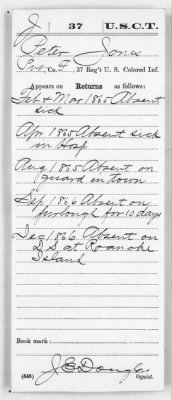 J | 37 | U.S.C.T.
Peter Jones
Pvt., Co. F, 37 Reg't U. S. Colored Inf.
Appears on Returns as follows:
Feb & Mar 1865 Absent
sick
Apr 1865 Absent sick
in Hosp
Aug 1865 Absent on
guard in town
Sep 1866 Absent on
furlough for 10 days
Dec 1866 Absent on
D.S. at Roanoke
Island
Book mark:
J E Douglas
(546) Copyist.